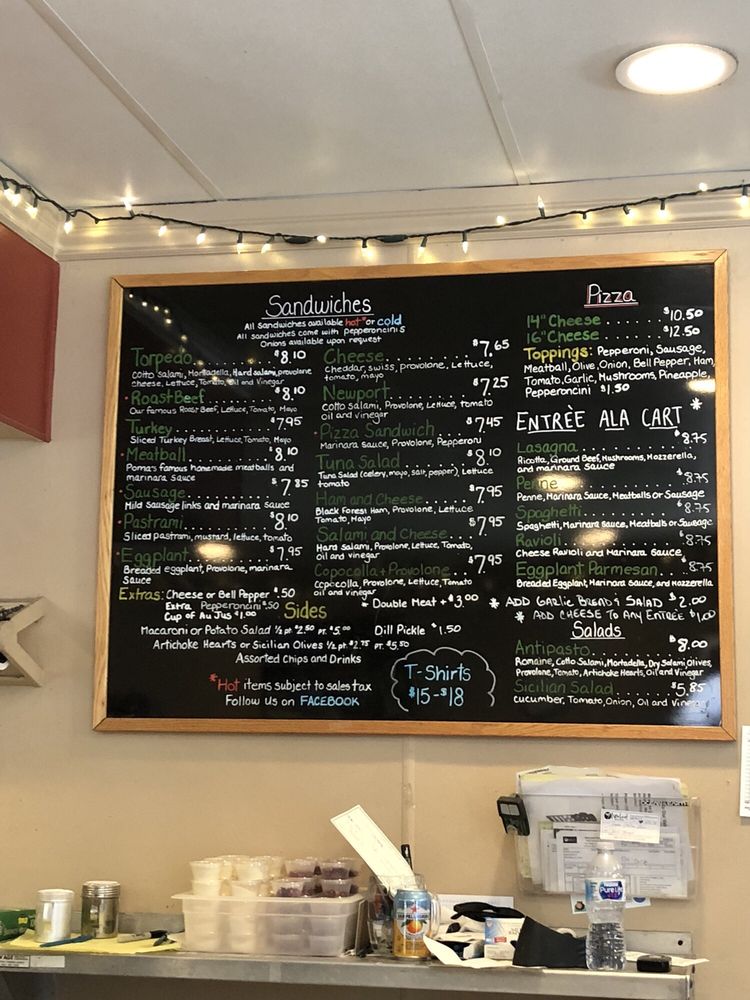 Sandwiches
All sandwiches available hot* or cold
All sandwiches come with pepperoncinis
Onions available upon request
Torpedo......... $8.10
Cotto salami, Mortadella, Hard salami, provolone
cheese, Lettuce, Tomato, Oil and Vinegar
*Roast Beef......... $8.10
Our famous Roast Beef, Lettuce, Tomato, Mayo
Turkey......... $7.95
Sliced Turkey Breast, Lettuce, Tomato, Mayo
*Meatball......... $8.10
Roma's famous homemade meatballs and
marinara sauce
*Sausage......... $7.85
Mild sausage links and marinara sauce
*Pastrami......... $8.10
Sliced pastrami, mustard, lettuce, tomato
*Eggplant......... $7.95
Breaded eggplant, Provolone, marinara
Sauce
Extras: Cheese or Bell Pepper $.50
Extra Pepperoncini $.50
Cup of Au Jus $1.00
Cheese......... $7.65
Cheddar, swiss, provolone, Lettuce,
tomato, mayo
Newport......... $7.25
Cotto salami, Provolone, Lettuce, tomato
oil and vinegar
*Pizza Sandwich.... $7.45
Marinara sauce, Provolone, Pepperoni
Tuna Salad......... $8.10
Tuna Salad (celery, mayo, salt, pepper), Lettuce
tomato
Ham and Cheese...... $7.95
Black Forest Ham, Provolone, Lettuce
Tomato, Mayo
Salami and Cheese.... $7.95
Hard Salami, Provolone, Lettuce, Tomato,
oil and vinegar
Copocolla + Provolone... $7.95
Copocolla, Provolone, Lettuce, Tomato
oil and vinegar
* Double Meat + $3.00
Sides
Macaroni or Potato Salad ½ pt. $2.50 pt. $5.00
Dill Pickle $1.50
Artichoke Hearts or Sicilian Olives ½ pt. $2.75 pt. $5.50
Assorted Chips and Drinks
*Hot items subject to sales tax
Follow Us on FACEBOOK
T-Shirts
$15-$18
Pizza
14" Cheese......... $10.50
16" Cheese......... $12.50
Toppings: Pepperoni, Sausage,
Meatball, Olive, Onion, Bell Pepper, Ham
Tomato, Garlic, Mushrooms, Pineapple,
Pepperoncini $1.50
ENTRÈE ALA CART *
Lasagna......... $8.75
Ricotta, Ground Beef, Mushrooms, Mozzerella,
and marinara sauce
Penne......... $8.75
Penne, Marinara Sauce, Meatballs or Sausage
Spaghetti......... $8.75
Spaghetti, Marinara sauce, Meatballs or Sausage
Ravioli......... $8.75
Cheese Ravioli and Marinara Sauce
Eggplant Parmesan.. $8.75
Breaded Eggplant, Marinara sauce, and Mozzerella
* ADD GARLIC BREAD & SALAD $2.00
* ADD CHEESE TO ANY ENTRÉE $1.00
Salads
Antipasto......... $8.00
Romaine, Cotto Salami, Mortadella, Dry Salami, Olives,
Provolone, Tomato, Artichoke Hearts, Oil and Vinegar
Sicilian Salad......... $5.85
Cucumber, Tomato, Onion, Oil and Vinegar
Pure Life